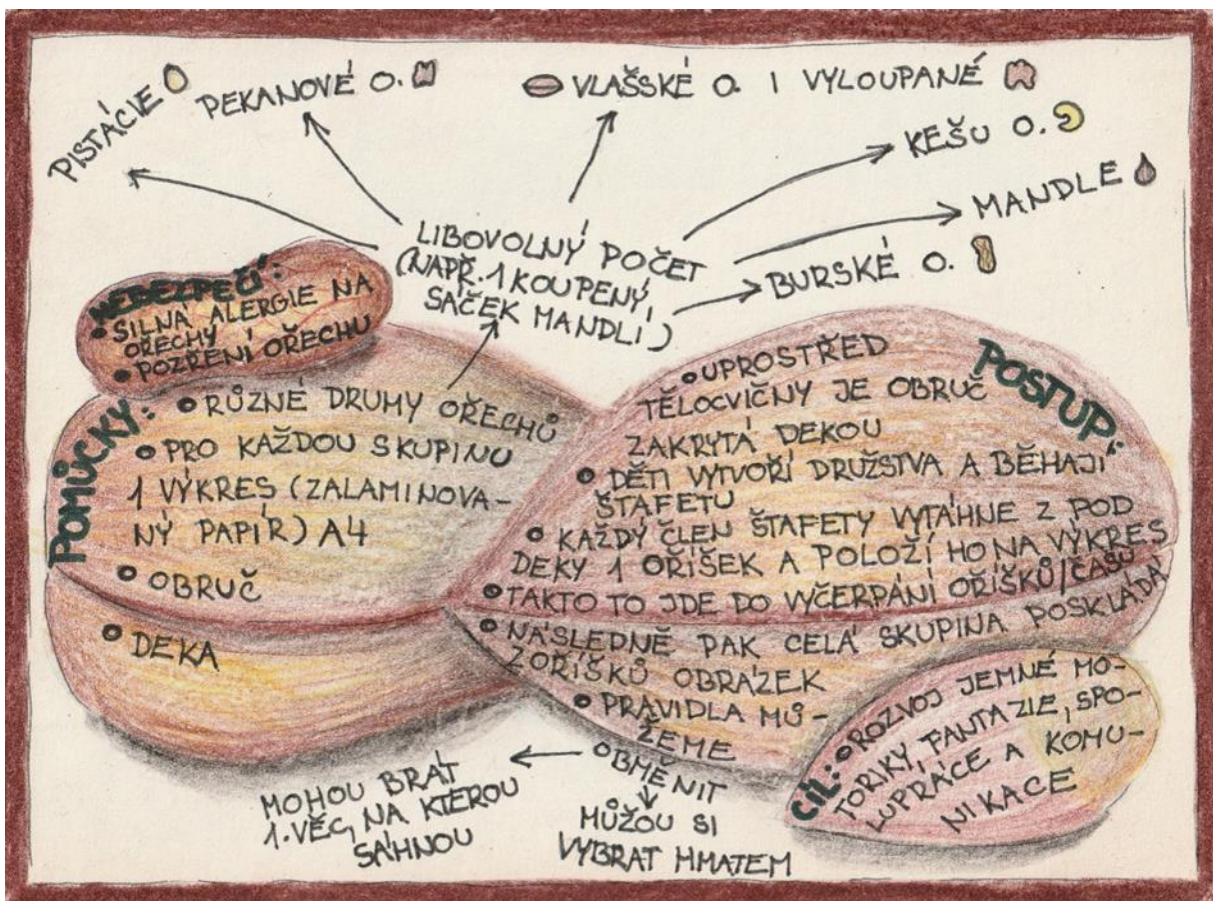 PISTÁCIE
PEKANOVÉ O.
VLAŠSKÉ O. I VYLOUPANÉ
KEŠU O.
MANDLE
BURSKÉ O.
LIBOVOLNÝ POČET
(NAPŘ. 1 KOUPENÝ
SÁČEK MANDLÍ)
NEBEZPEČÍ:
• SILNÁ ALERGIE NA
OŘECHY
• POZŘENÍ OŘECHU
POMŮCKY:
• RŮZNÉ DRUHY OŘECHŮ
• PRO KAŽDOU SKUPINU
1 VÝKRES (ZALAMINOVA-
NÝ PAPÍR) A4
• OBRUČ
• DEKA
POSTUP:
• UPROSTŘED
TĚLOCVIČNY JE OBRUČ
ZAKRYTÁ DEKOU
• DĚTI VYTVOŘÍ DRUŽSTVA A BĚHAJÍ
ŠTAFETU
• KAŽDÝ ČLEN ŠTAFETY VYTÁHNE Z POD
DEKY 1 OŘÍŠEK A POLOŽÍ HO NA VÝKRES
• TAKTO TO JDE DO VYČERPÁNÍ OŘÍŠKŮ/ČASU
• NÁSLEDNĚ PAK CELÁ SKUPINA POSKLÁDÁ
Z OŘÍŠKŮ OBRÁZEK
• PRAVIDLA MŮ-
ŽEME
OBMĚNIT
MOHOU BRÁT
1. VĚC, NA KTEROU
SÁHNOU
MŮŽOU SI
VYBRAT HMATEM
CÍL: • ROZVOJ JEMNÉ MO-
TORIKY, FANTAZIE, SPO-
LUPRÁCE A KOMU-
NIKACE